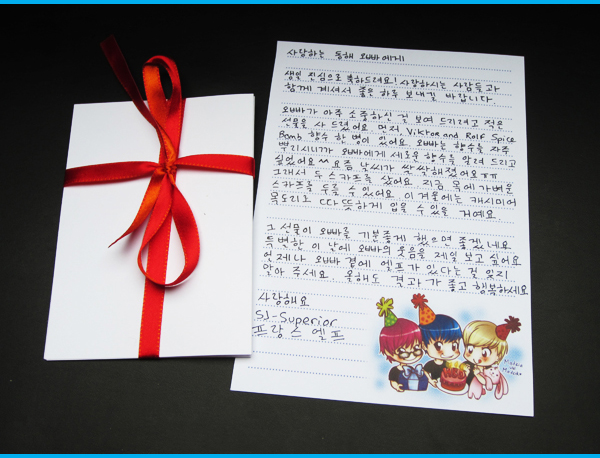 사랑하는 동해 오빠에게
생일 진심으로 축하드려요! 사랑하시는 사람들과
함께 계셔서 좋은 하루 보내길 바랍니다
오빠가 아주 소중하신 걸 보여 드리려고 적은
선물을 사 드렸어요. 먼저 Viktor and Rolf Spice
Bomb 향수 한 병이 있어요. 오빠는 향수를 자주
뿌리시니까 오빠에게 세로운 향수를 알려 드리고
싶었어요 ^^ 요즘 날씨가 쌀쌀해졌어요 ㅠㅠ
그래서 두 스카프를 샀어요. 지금 목에 가벼운
스카프을 두를 수 있어요. 이 겨울에는 캐시미어
목도리로 따뜻하게 입을 수 있을 거예요.
그 선물이 오빠를 기분좋게 했으면 좋겠네요.
특별한 이 날에 오빠의 웃음을 제일 보고 싶어요
언제나 오빠 곁에 엘프가 있다는 걸 잊지
말아 주세요. 올해도 결과가 좋고 행복하세요
사랑해요
SJ-Superior
프랑스 엘프